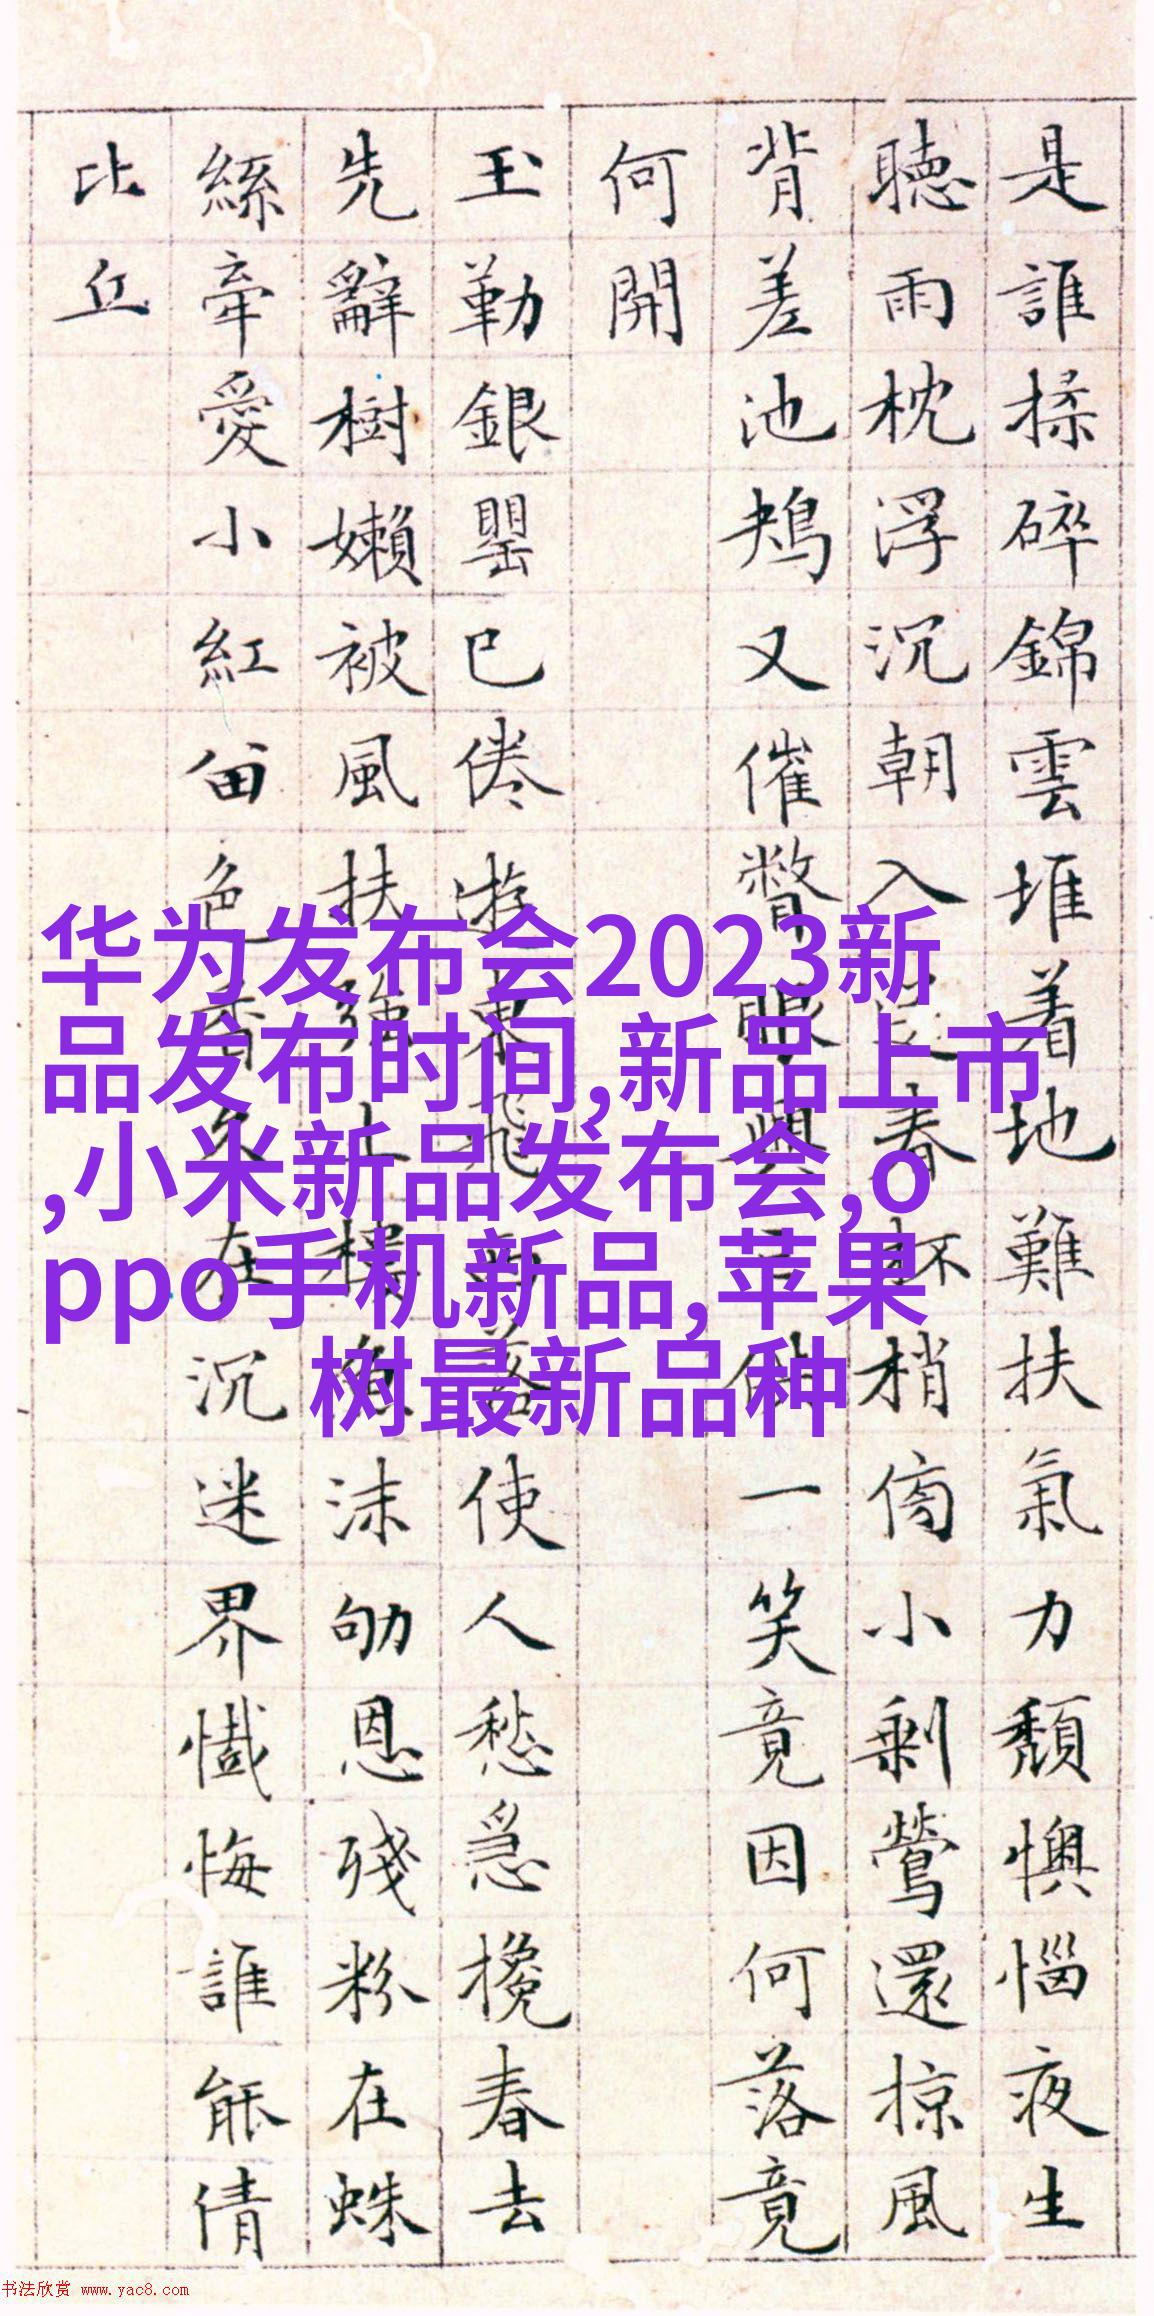 是誰揉碎錦雲堆着地難扶氣力頹懊惱夜生
聴雨枕浮沉朝入春杯梢傷小剩鶯還掠風
背差池鵊又催瞥眼興供一笑竟因何落竟
何開
玉勒銀罌已倦遊東飛落使人愁急攙春去
先辭樹嬾被風扶強上樓魚沫劬恩殘粉在蛛
絲牽愛小紅留色香久在沉迷界懺悔誰能倩
比丘
华为发布会2023新
品发布时间,新品上市
,小米新品发布会,o
ppo手机新品,苹果
树最新品种
书法欣赏 www.yac8.com